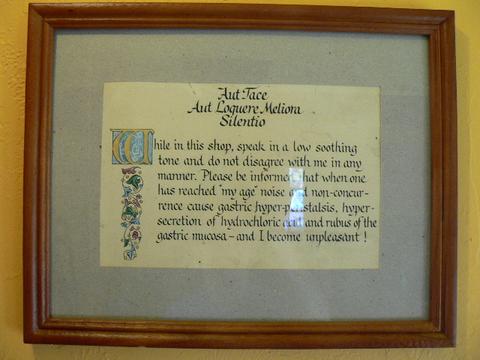 Aut Tace
Aut Loquere Meliora
Silentio
While in this shop, speak in a low soothing
tone and do not disagree with me in any
manner. Please be informed that when one
has reached "my age" noise and non-concur-
rence cause gastric hyper-peristalsis, hyper-
secretion of hydrochloric acid and rubus of the
gastric mucosa - and I become unpleasant!